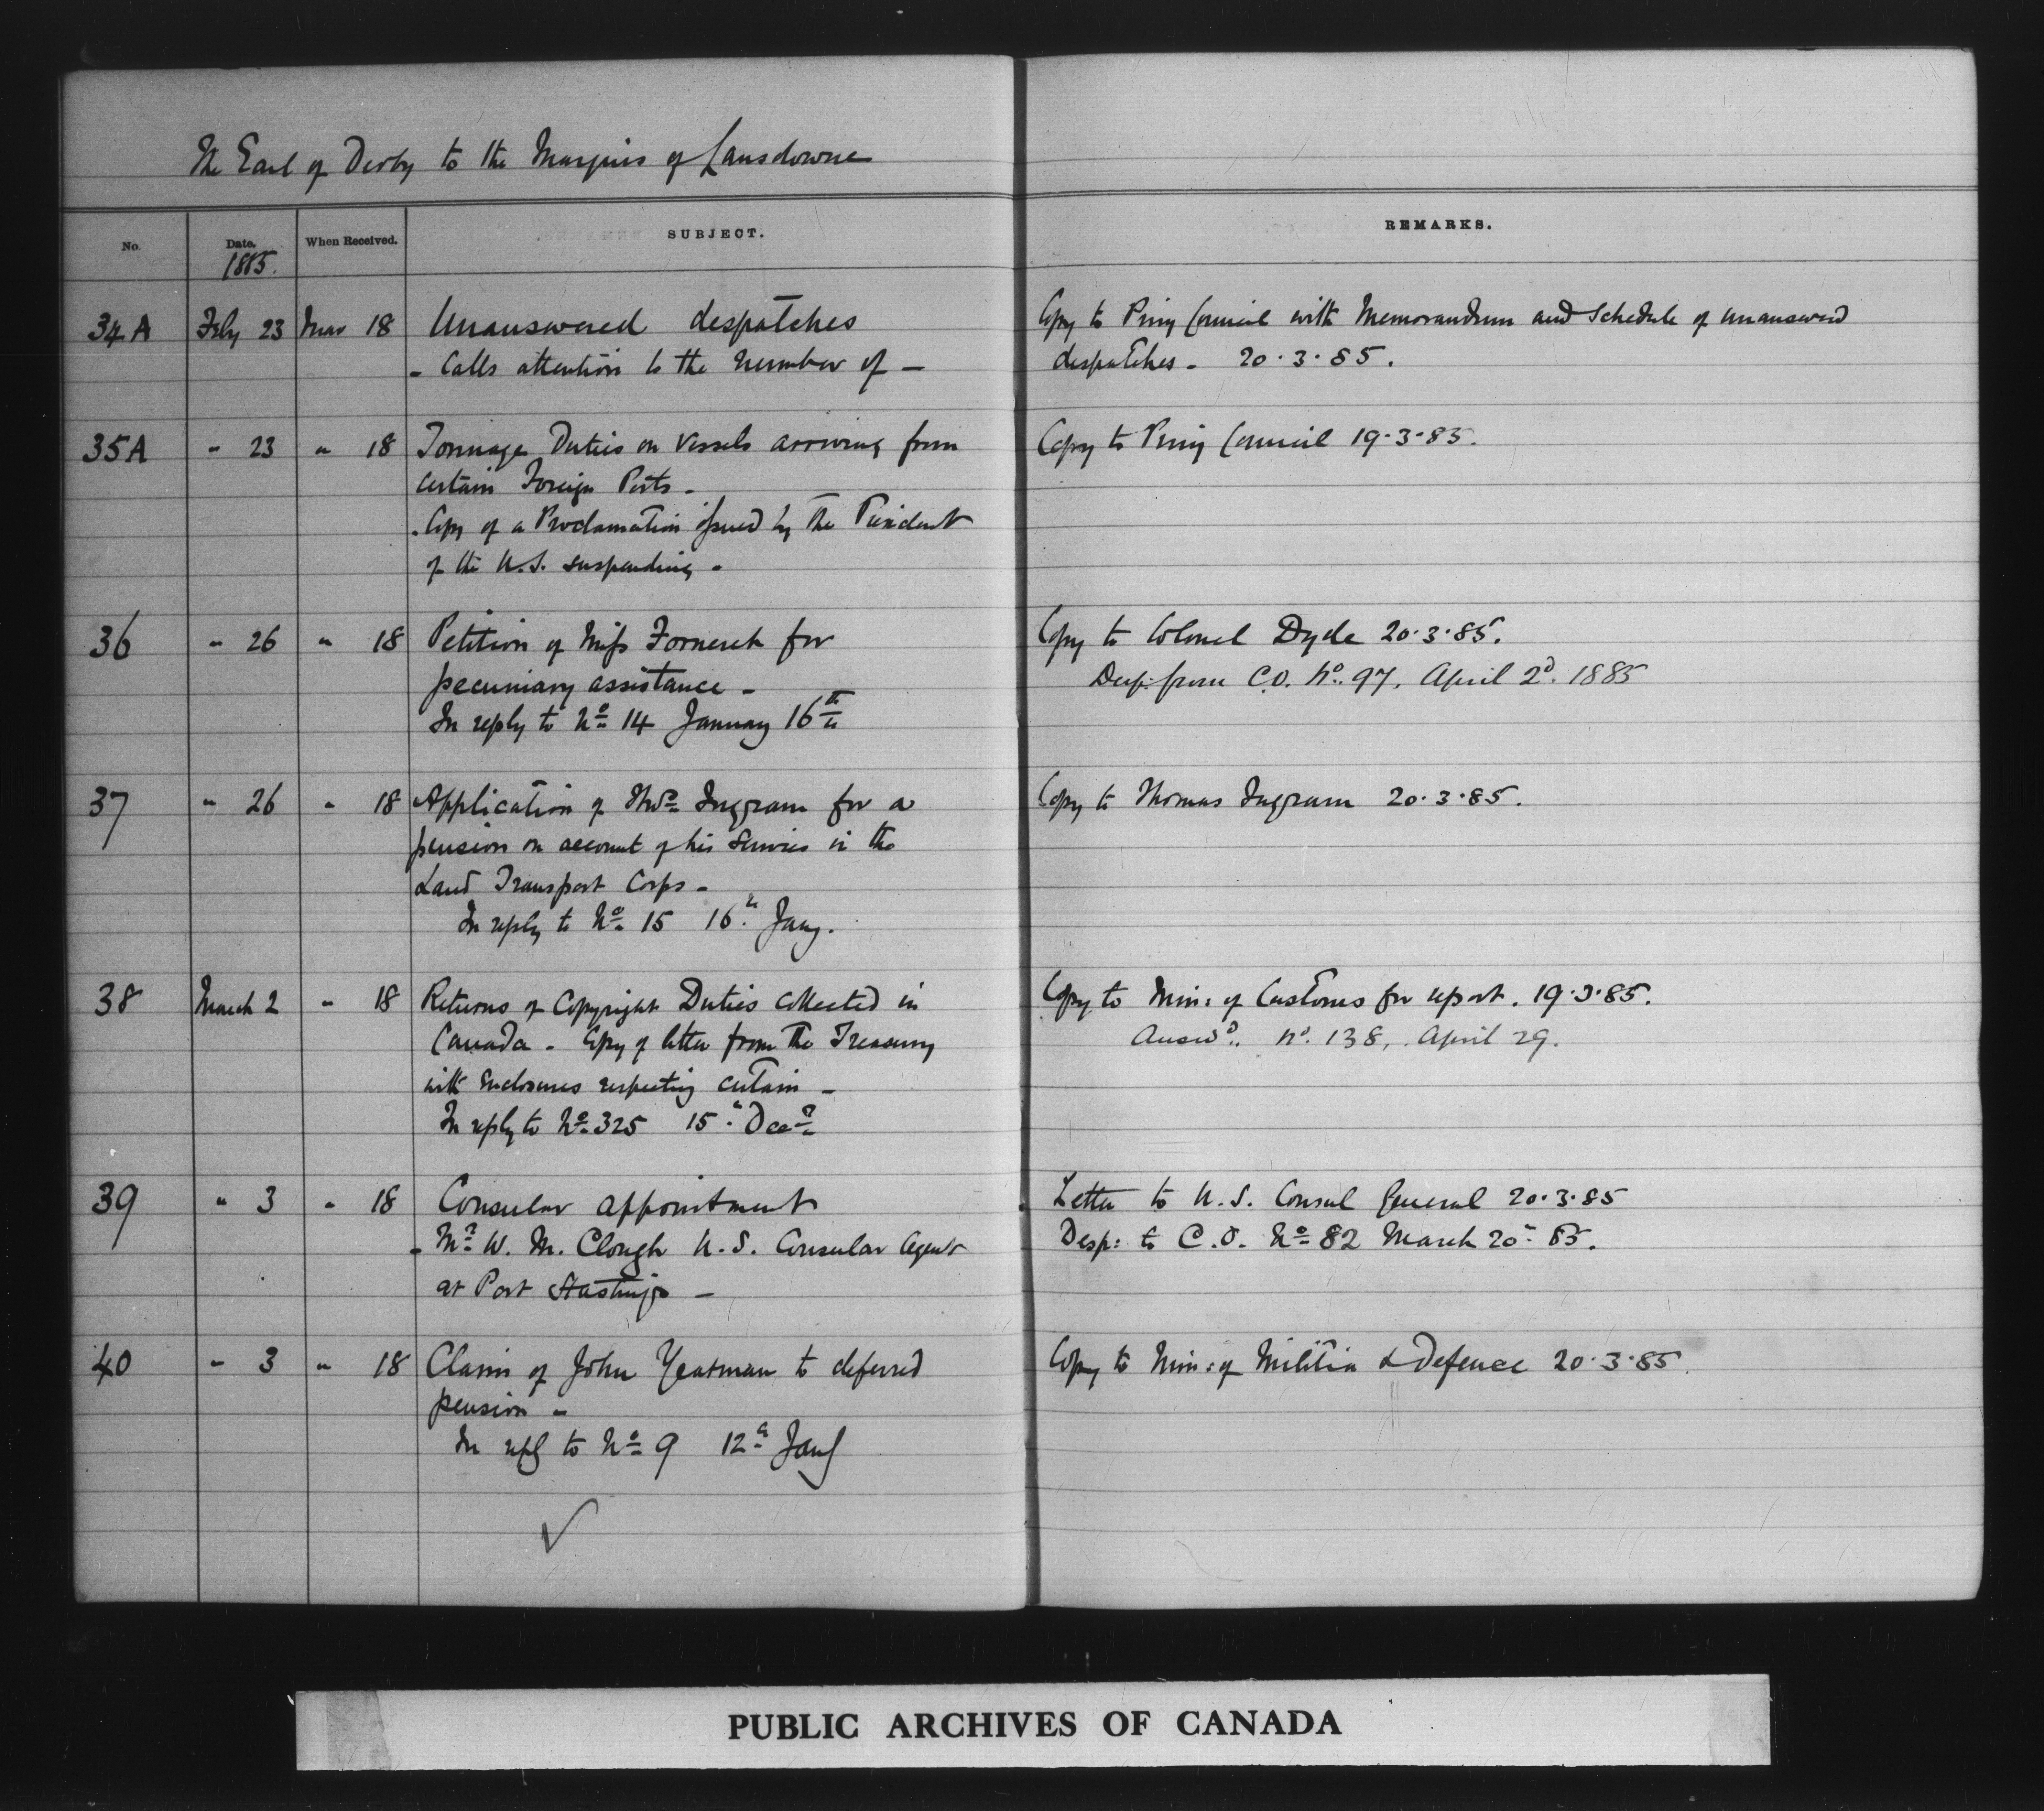 The Earl of Derby to the Marquis of Lansdowne
No. Date. When Received. SUBJECT. REMARKS.
1885.
34A Feby 23 Mar 18 Unanswered despatches
- Calls attention to the number of -
Copy to Privy Council with Memorandum and Schedule of unanswered
despatches - 20.3.85.
35A " 23 " 18 Tonnage Duties on Vessels arriving from
certain Foreign Ports -
- Copy of a Proclamation issued by the President
of the U.S. suspending -
Copy to Privy Council 19.3.85.
36 " 26 " 18 Petition of Miss Forneret for
pecuniary assistance -
In reply to No 14 January 16th
Copy to Colonel Dyde 20.3.85.
Desp: from C.O. No. 97, April 2d. 1885
37 " 26 " 18 Application of Thos Ingram for a
pension on account of his services in the
Land Transport Corps -
In reply to No 15 16th Jany.
Copy to Thomas Ingram 20.3.85.
38 March 2 " 18 Returns of Copyright Duties collected in
Canada - Copy of letter from the Treasury
with Enclosures respecting certain -
In reply to No 325 15th Decr
Copy to Min: of Customs for report. 19.3.85.
Answd.. No. 138, April 29.
39 " 3 " 18 Consular appointment
- Mr W. M. Clough U.S. Consular Agent
at Port Hastings -
Letter to U.S. Consul General 20.3.85
Desp: to C.O. No 82 March 20th 85.
40 " 3 " 18 Claim of John Yeatman to deferred
pension -
In reply to No 9 12th Jany
Copy to Min: of Militia & Defence 20.3.85.
PUBLIC ARCHIVES OF CANADA